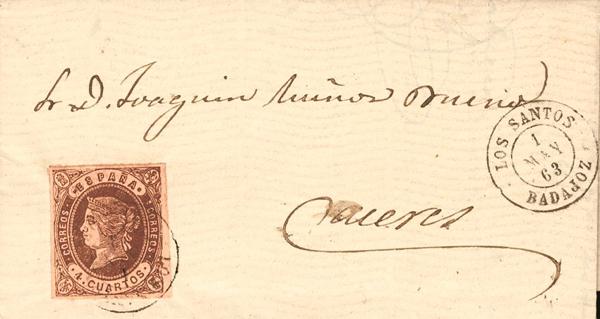 Sr. D. Joaquin Muñoz Bueno
LOS SANTOS
1
MAY
63
BADAJOZ
Caceres
ESPAÑA
CORREOS
CORREOS
4. CUARTOS.